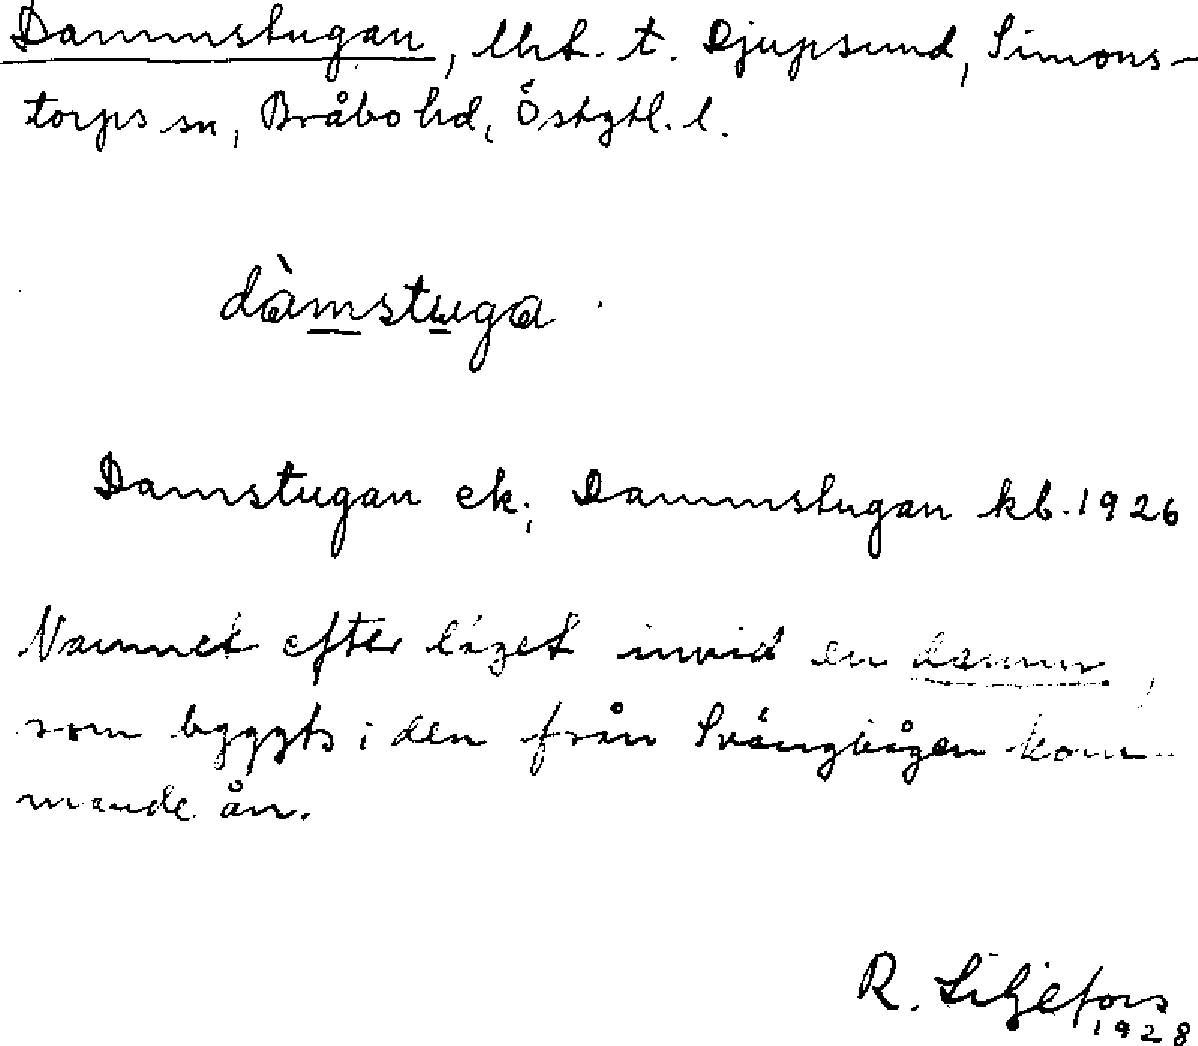 Dammstugan, lht. t. Djupsund, Simons-
torps sn, Bråbo hd, Östgtl. l.
dàmstuga
Damstugan ek; Dammstugan kb. 1926
Namnet efter läget invid en damm,
som byggts i den från Svängbågen kom-
mande ån.
R. Liljefors
1928